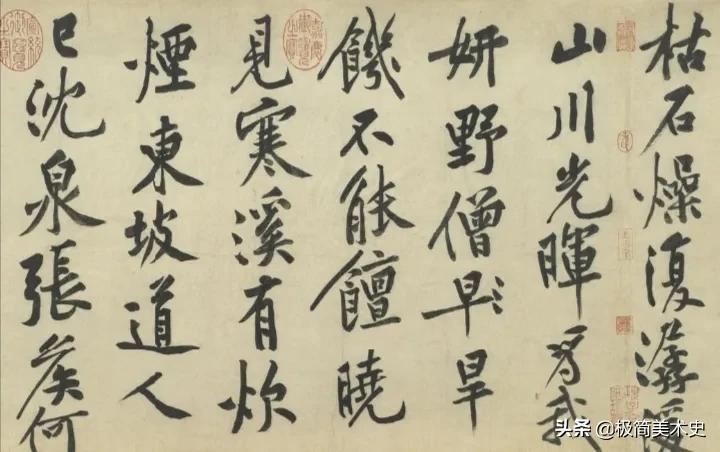 枯石燥復潺湲
山川光暉為我
妍野僧早旱
饑不能饘曉
見寒溪有炊
煙東坡道人
已沈泉張侯何
头条 @极简美术史